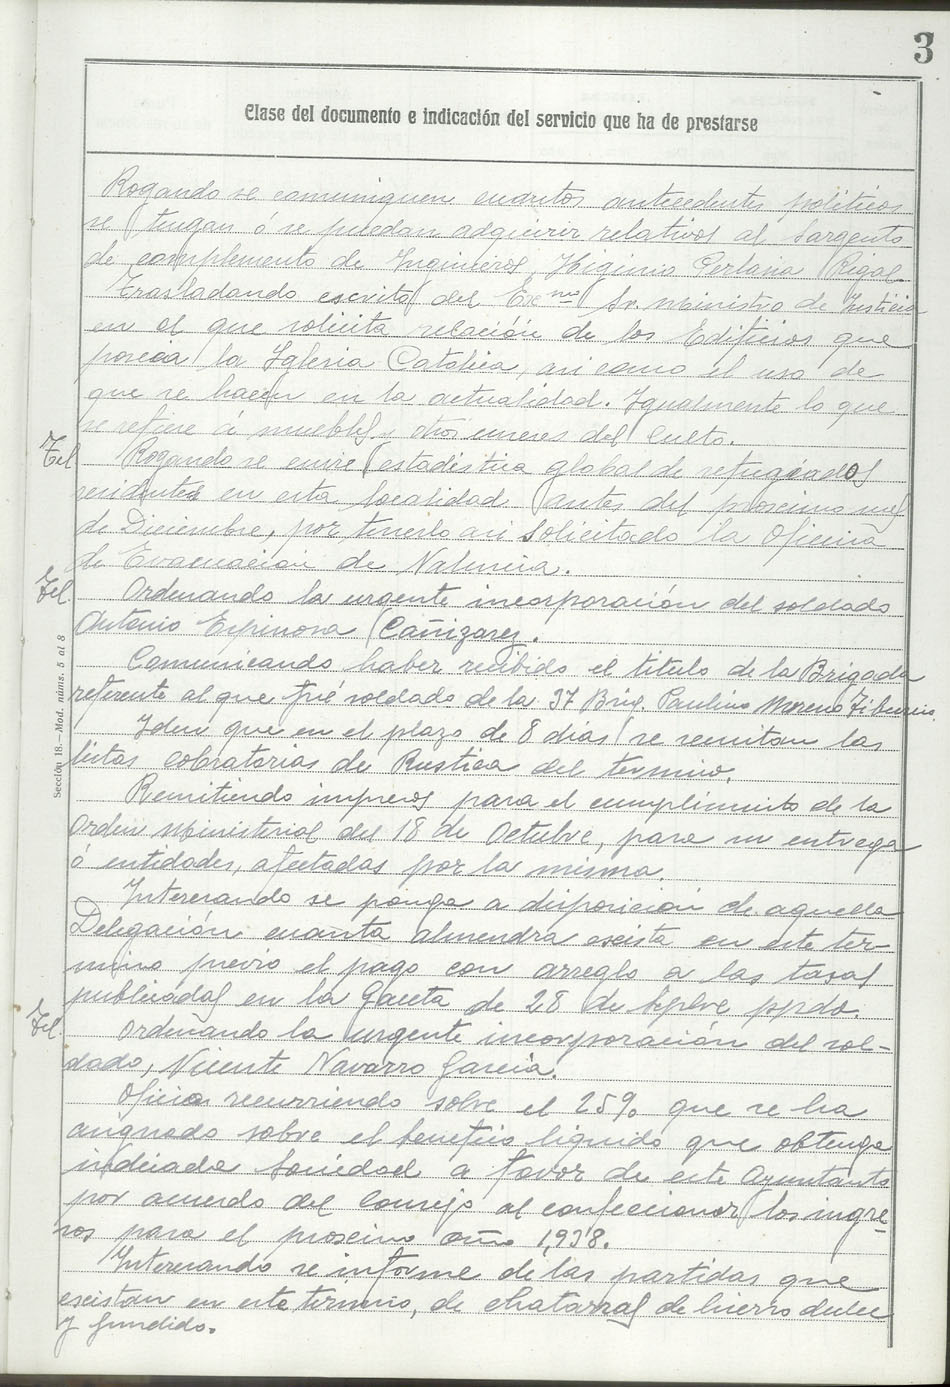 3
Clase del documento e indicación del servicio que ha de prestarse
Rogando se comuniquen cuantos antecedentes políticos
se tengan ó se puedan adquirir relativos al Sargento
de complemento de Ingenieros, Higinio Perlasia Rigal.
Trasladando escrito del Excmo Sr. Ministro de Justicia
en el que solicita relación de los Edificios que
poseia la Iglesia Catolica, asi como el uso de
que se hacen en la actualidad. Igualmente lo que
se refiere á muebles y otros enseres del Culto.
Tel. Rogando se envie estadistica global de refugiados
residentes en esta localidad antes del proximo mes
de Diciembre, por tenerlo asi solicitado la Oficina
de Evacuacion de Valencia.
Tel. Ordenando la urgente incorporación del soldado
Antonio Espinosa Cañizares.
Comunicando haber recibido el titulo de la Brigada
referente al que fué soldado de la 37 Brig. Paulino Moreno Tiburcio.
Iden que en el plazo de 8 dias se remitan las
listas cobratorias de Rustica del termino.
Remitiendo impresos para el cumplimiento de la
Orden Ministerial del 18 de Octubre, para su entrega
á entidades, afectadas por la misma.
Interesando se ponga a disposición de aquella
Delegación cuanta almendra exista en este ter-
mino previo el pago con arreglo a las tasas
publicadas en la Gaceta de 28 de Spbre ppdo.
Tel. Ordenando la urgente incorporación del sol-
dado, Vicente Navarro Garcia.
Oficio recurriendo sobre el 25% que se ha
asignado sobre el beneficio liquido que obtenga
indicada Sociedad a favor de este Ayuntamto
por acuerdo del Consejo al confeccionar los ingre-
sos para el proximo año 1,938.
Interesando se informe de las partidas que
existan en este termino, de chatarras de hierro dulce
y fundido.
Sección 18.—Mod. núms. 5 al 8